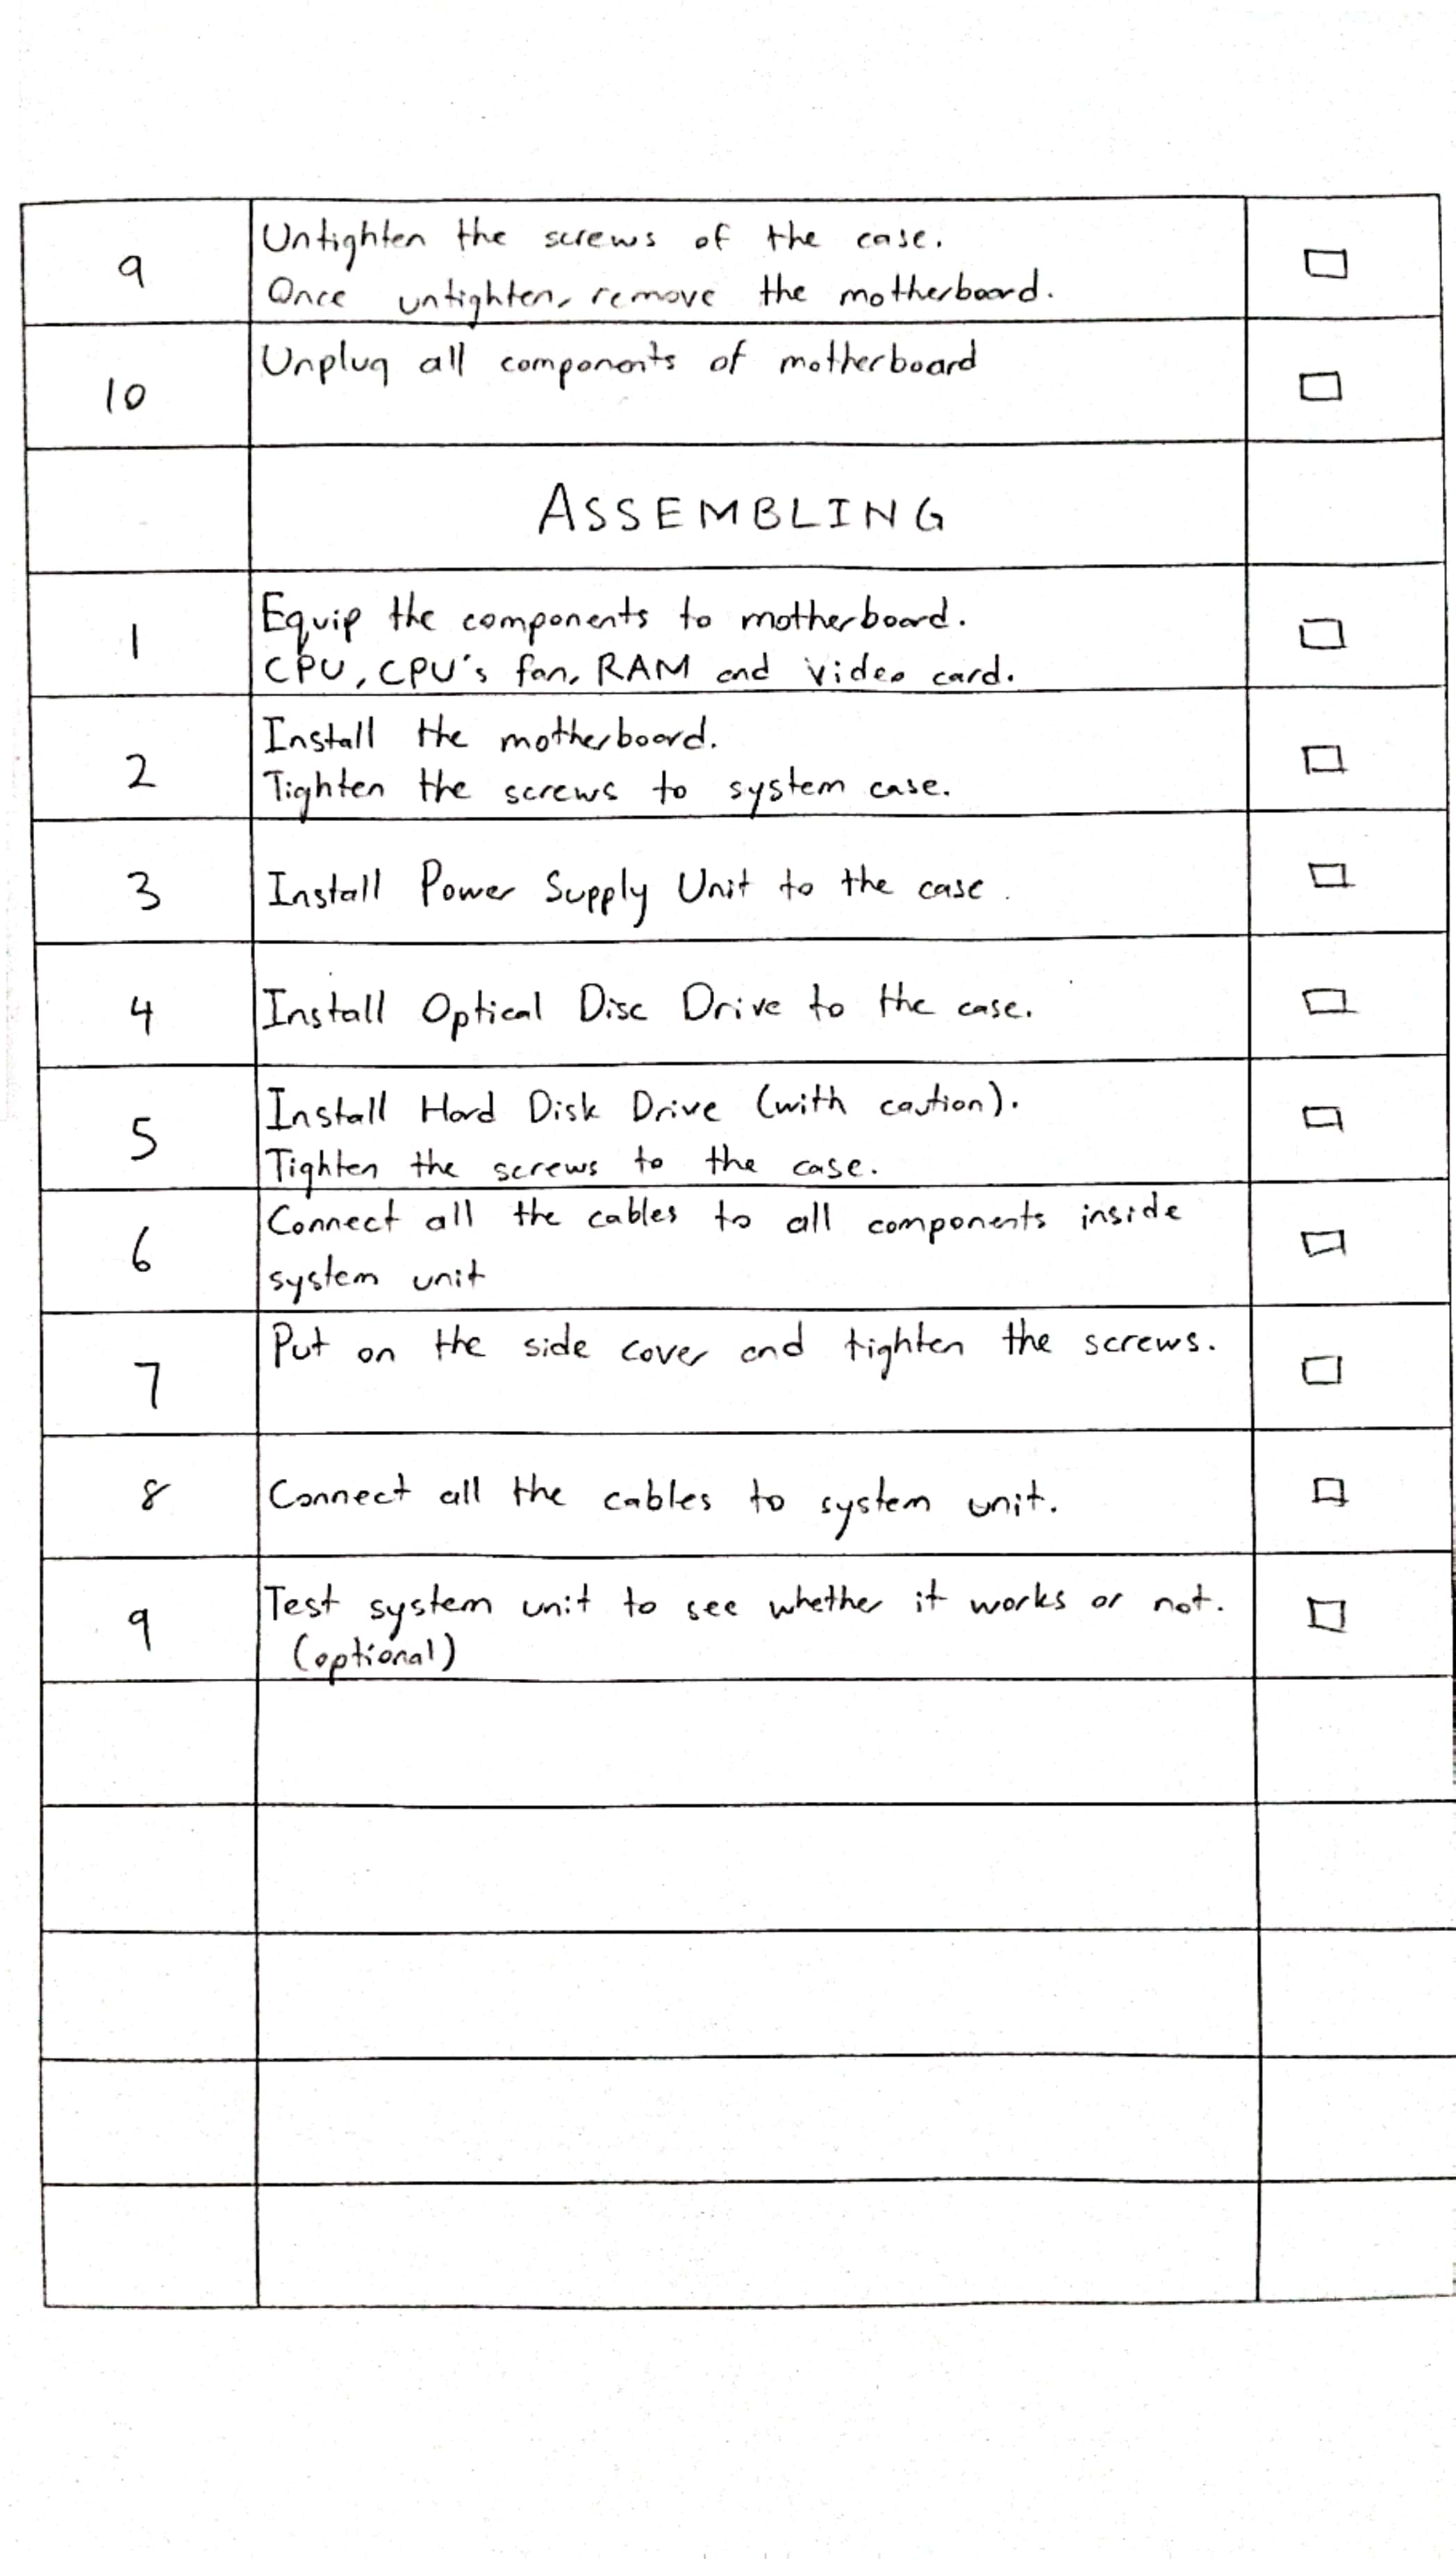 9
Untighten the screws of the case.
Once untighten, remove the motherboard.
10
Unplug all components of motherboard
ASSEMBLING
1
Equip the components to motherboard.
CPU, CPU's fan, RAM and video card.
2
Install the motherboard.
Tighten the screws to system case.
3
Install Power Supply Unit to the case.
4
Install Optical Disc Drive to the case.
5
Install Hard Disk Drive (with caution).
Tighten the screws to the case.
6
Connect all the cables to all components inside
system unit
7
Put on the side cover and tighten the screws.
8
Connect all the cables to system unit.
9
Test system unit to see whether it works or not.
(optional)